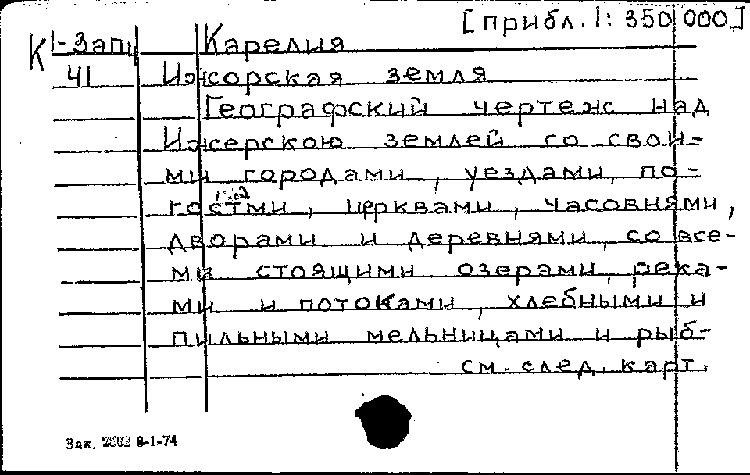 [прибл. 1: 350 000]
К 1-Зап Карелия
41 Ижорская земля
Географский чертеж над
Ижерскою землей со свои-
ми городами, уездами, по-
гостми, церквами, часовнями,
дворами и деревнями, со все-
ми стоящими озерами, река-
ми и потоками, хлебными и
пильными мельницами и рыб-
см. след. карт.
Зак. 8-1-74